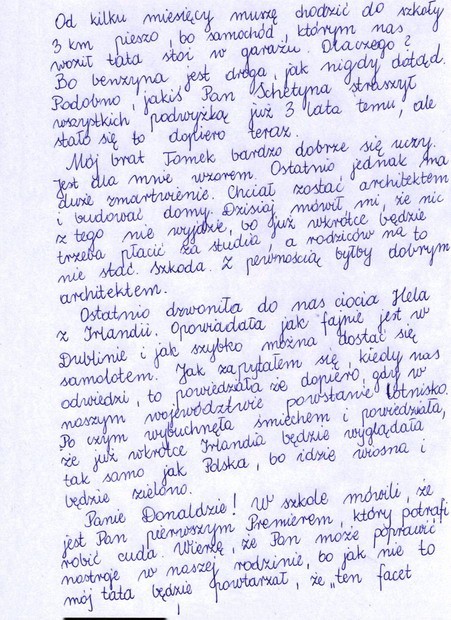 Od kilku miesięcy muszę chodzić do szkoły
3 km pieszo, bo samochód, którym nas
woził tata stoi w garażu. Dlaczego?
Bo benzyna jest droga, jak nigdy dotąd.
Podobno, jakiś Pan Schetyna straszył
wszystkich podwyżką już 3 lata temu, ale
stało się to dopiero teraz.
Mój brat Tomek bardzo dobrze się uczy.
Jest dla mnie wzorem. Ostatnio jednak ma
duże zmartwienie. Chciał zostać architektem
i budować domy. Dzisiaj mówił mi, że nic
z tego nie wyjdzie, bo już wkrótce będzie
trzeba płacić za studia, a rodziców na to
nie stać. Szkoda. Z pewnością byłby dobrym
architektem.
Ostatnio dzwoniła do nas ciocia Hela
z Irlandii. Opowiadała jak fajnie jest w
Dublinie i jak szybko można dostać się
samolotem. Jak zapytałem się, kiedy nas
odwiedzi, to powiedziała że dopiero, gdy w
naszym województwie powstanie lotnisko.
Po czym wybuchnęła śmiechem i powiedziała,
że już wkrótce Irlandia będzie wyglądała
tak samo jak Polska, bo idzie wiosna i
będzie zielono.
Panie Donaldzie! W szkole mówili, że
jest Pan pierwszym Premierem, który potrafi
robić cuda. Wierzę, że Pan może poprawić
nastroje w naszej rodzinie, bo jak nie to
mój tata będzie powtarzał, że „ten facet